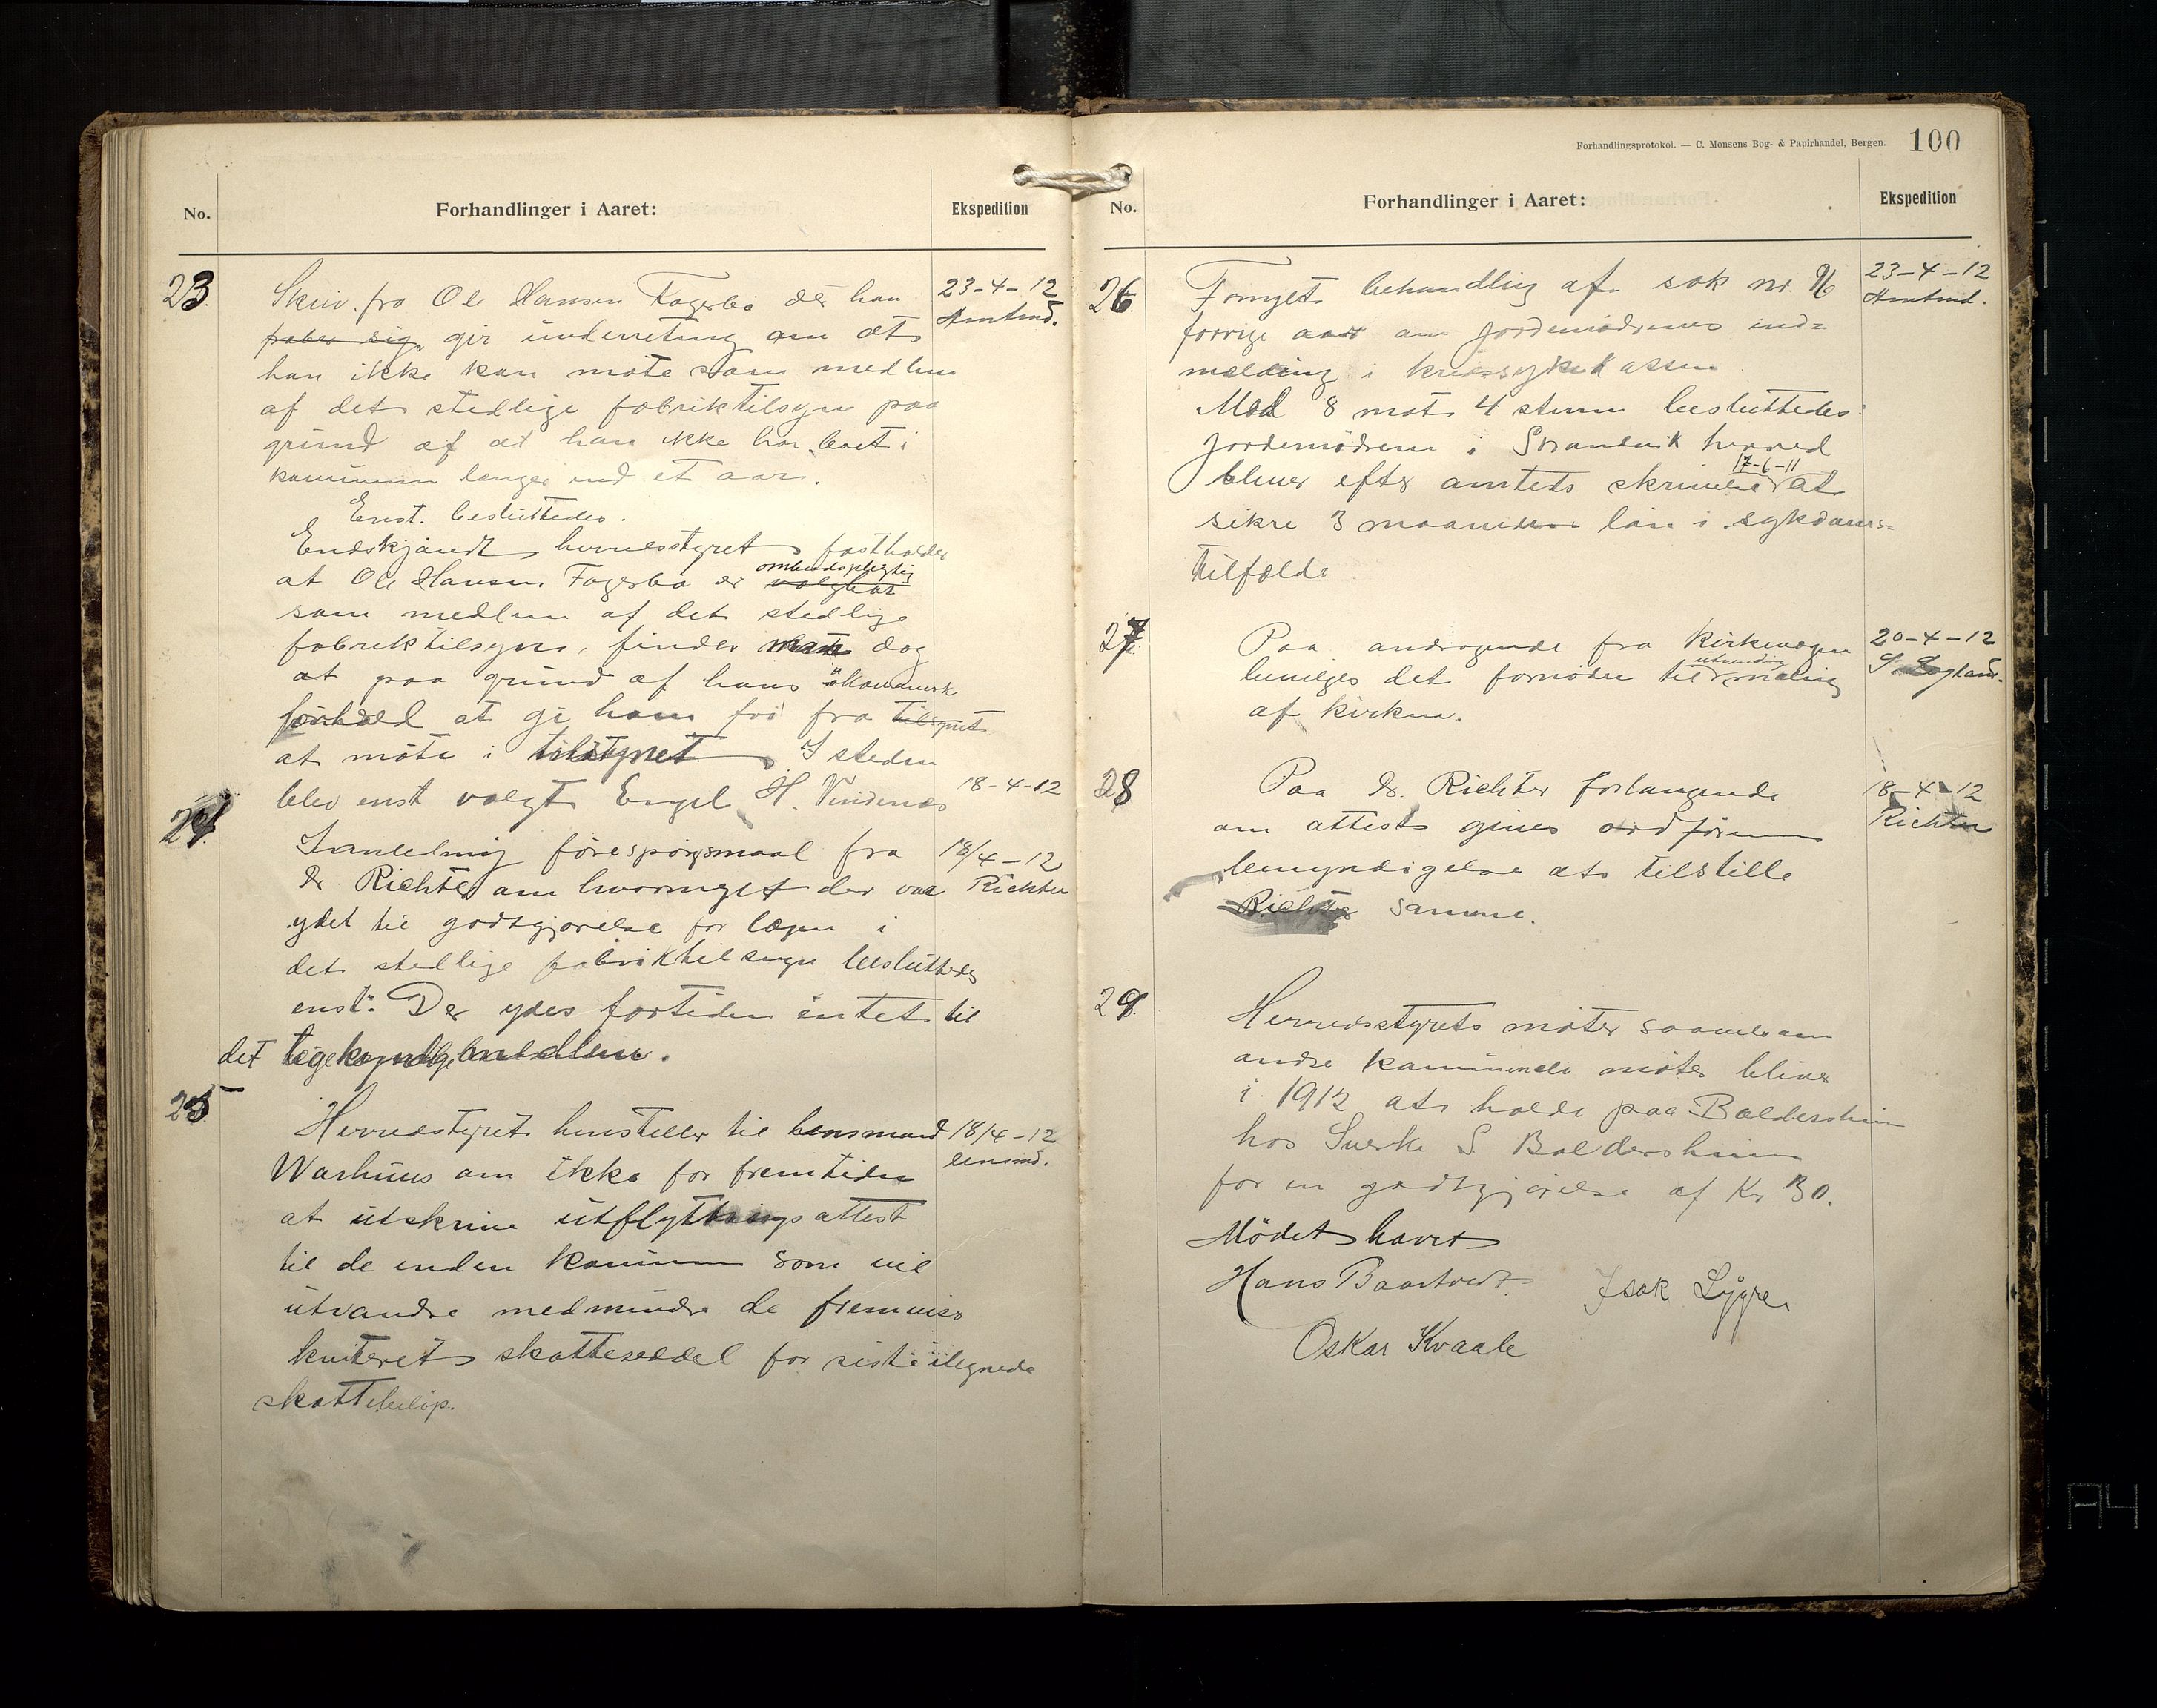 No.
Forhandlinger i Aaret:
Ekspedition
23
Skriv. fra Ole Hansen Fagerbø der han
paber sig gir underretning om at
han ikke kan møte som medlem
af det stedlige fabriktilsyn paa
grund af at han ikke har boet i
kommunen lenger end et aar.
Enst. besluttedes.
Endskjøndt herredsstyret fastholder
ombudspligtig
at Ole Hansen Fagerbø er valgbar
som medlem af det stedlige
fabriktilsyn, finder dog
at paa grund af hans økonomisk
forhold at gi ham fri fra tilsynet
at møte i tilsynet I steden
blev enst valgt Engel H. Vindenes
23-4-12
Amtmd.
18-4-12
24
I anledning forespørgsmaal fra
Dr. Richter om hvormeget der var
ydet til godtgjørelse for lægen i
det stedlige fabriktilsyn besluttedes
enst: Der ydes fortiden intet til
det lægekyndige medlem.
18/4-12
Richter
25
Herredstyret henstiller til lensmand
Warhuus om ikke for fremtiden
at utskrive utflytningsattest
til de enden kommunen som vil
utvandre medmindre de fremviser
kviteret skatteseddel for sist ilegnede
skattebeløp.
18/4-12
lensmd.
Forhandlingsprotokol. — C. Monsens Bog- & Papirhandel, Bergen.
100
No.
Forhandlinger i Aaret:
Ekspedition
26
Fornyet behandling af sak nr.
forrige aar om jordemødrenes ind=
melding i kredssykekassen
Med 8 mot 4 stemm besluttedes:
Jordemødrene i Strandvik herred
17-6-11
bliver efter amtets skrivelse at
sikre 3 maaneders løn i sykdoms=
tilfælde
23-4-12
Amtmd.
27
Paa andragende fra kirkevergen
utvendig
bevilges det fornødne til maling
af kirken.
20-4-12
28
Paa Dr. Richter forlangende
om attest gives ordføreren
bemyndigelse at tilstille
Richter samme.
18-4-12
Richter
29
Herredsstyrets møter saavelsom
andre kommunale møter bliver
i 1912 at holde paa Baldersheim
hos Sverke S Baldersheim
for en godtgjørelse af Kr 30.
Mødet hævet
Hans Baartvedt. Isak Lygre
Oskar Kvaale